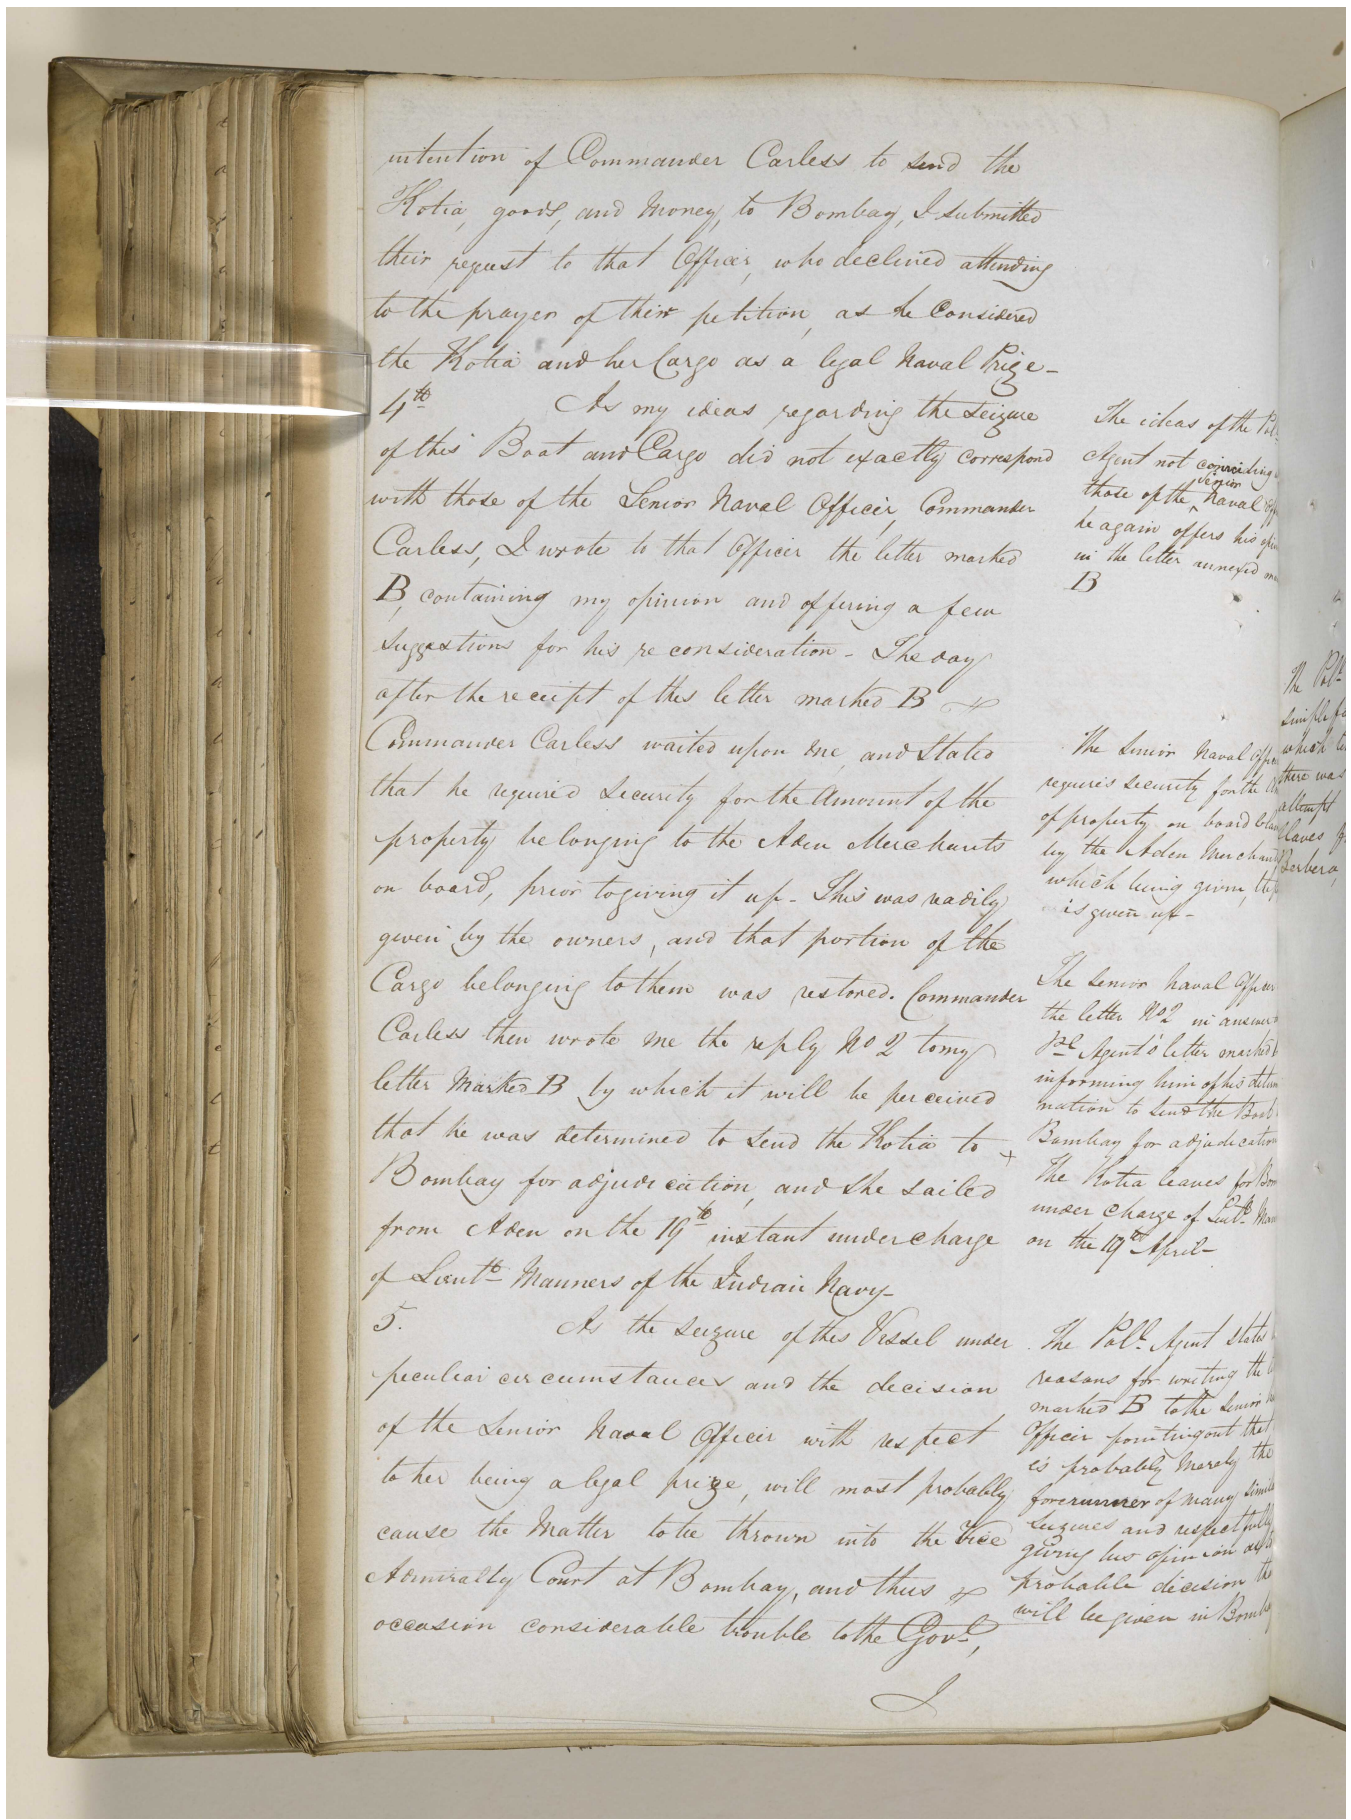 intention of Commander Carless to send the
Kotia, goods, and Money, to Bombay, I submitted
their request to that Officer, who declined attending
to the prayer of their petition, as he Considered
the Kotia and her Cargo as a legal Naval Prize –
4th As my ideas regarding the seizure
of this Boat and Cargo did not exactly correspond
with those of the Senior Naval Officer, Commander
Carless, I wrote to that Officer the letter marked
B, containing my opinion and offering a few
suggestions for his reconsideration – The day
after the receipt of this letter marked B
Commander Carless waited upon me, and stated
that he required Security for the Amount of the
property belonging to the Aden Merchants
on board, prior to giving it up – This was readily
given by the owners, and that portion of the
Cargo belonging to them was restored. Commander
Carless then wrote me the reply No 2 to my
letter Marked B by which it will be perceived
that he was determined to send the Kotia to
Bombay for adjudication, and she sailed
from Aden on the 19th instant under charge
of Lieutt Manners of the Indian Navy –
5. As the seizure of this Vessel under
peculiar circumstances and the decision
of the Senior Naval Officer with respect
to her being a legal prize, will most probably
cause the Matter to be thrown into the Vice
Admiralty Court at Bombay, and thus
occasion considerable trouble to the Govt,
I
The ideas of the Poll
Agent not coinciding
those of the Senior Naval
he again offers his
in the letter annexed
B
The Senior Naval
requires security for the
of property on board
by the Aden Merchants
which being given,
is given up –
The Senior Naval Officer
the letter No 2 in answer
Pol Agent's letter marked
informing him of his deter
mination to send the Boat
Bombay for adjudication
The Kotia leaves for
under charge of Lieutt
on the 19th April –
The Poll Agent states
reasons for writing the
marked B to the Senior
Officer pointing out that
is probably Merely the
forerunner of many
seizures and respectfully
giving his opinion
probable decision
will be given in
The Poll
simple
which
there was
attempt
Slaves
Berbera,